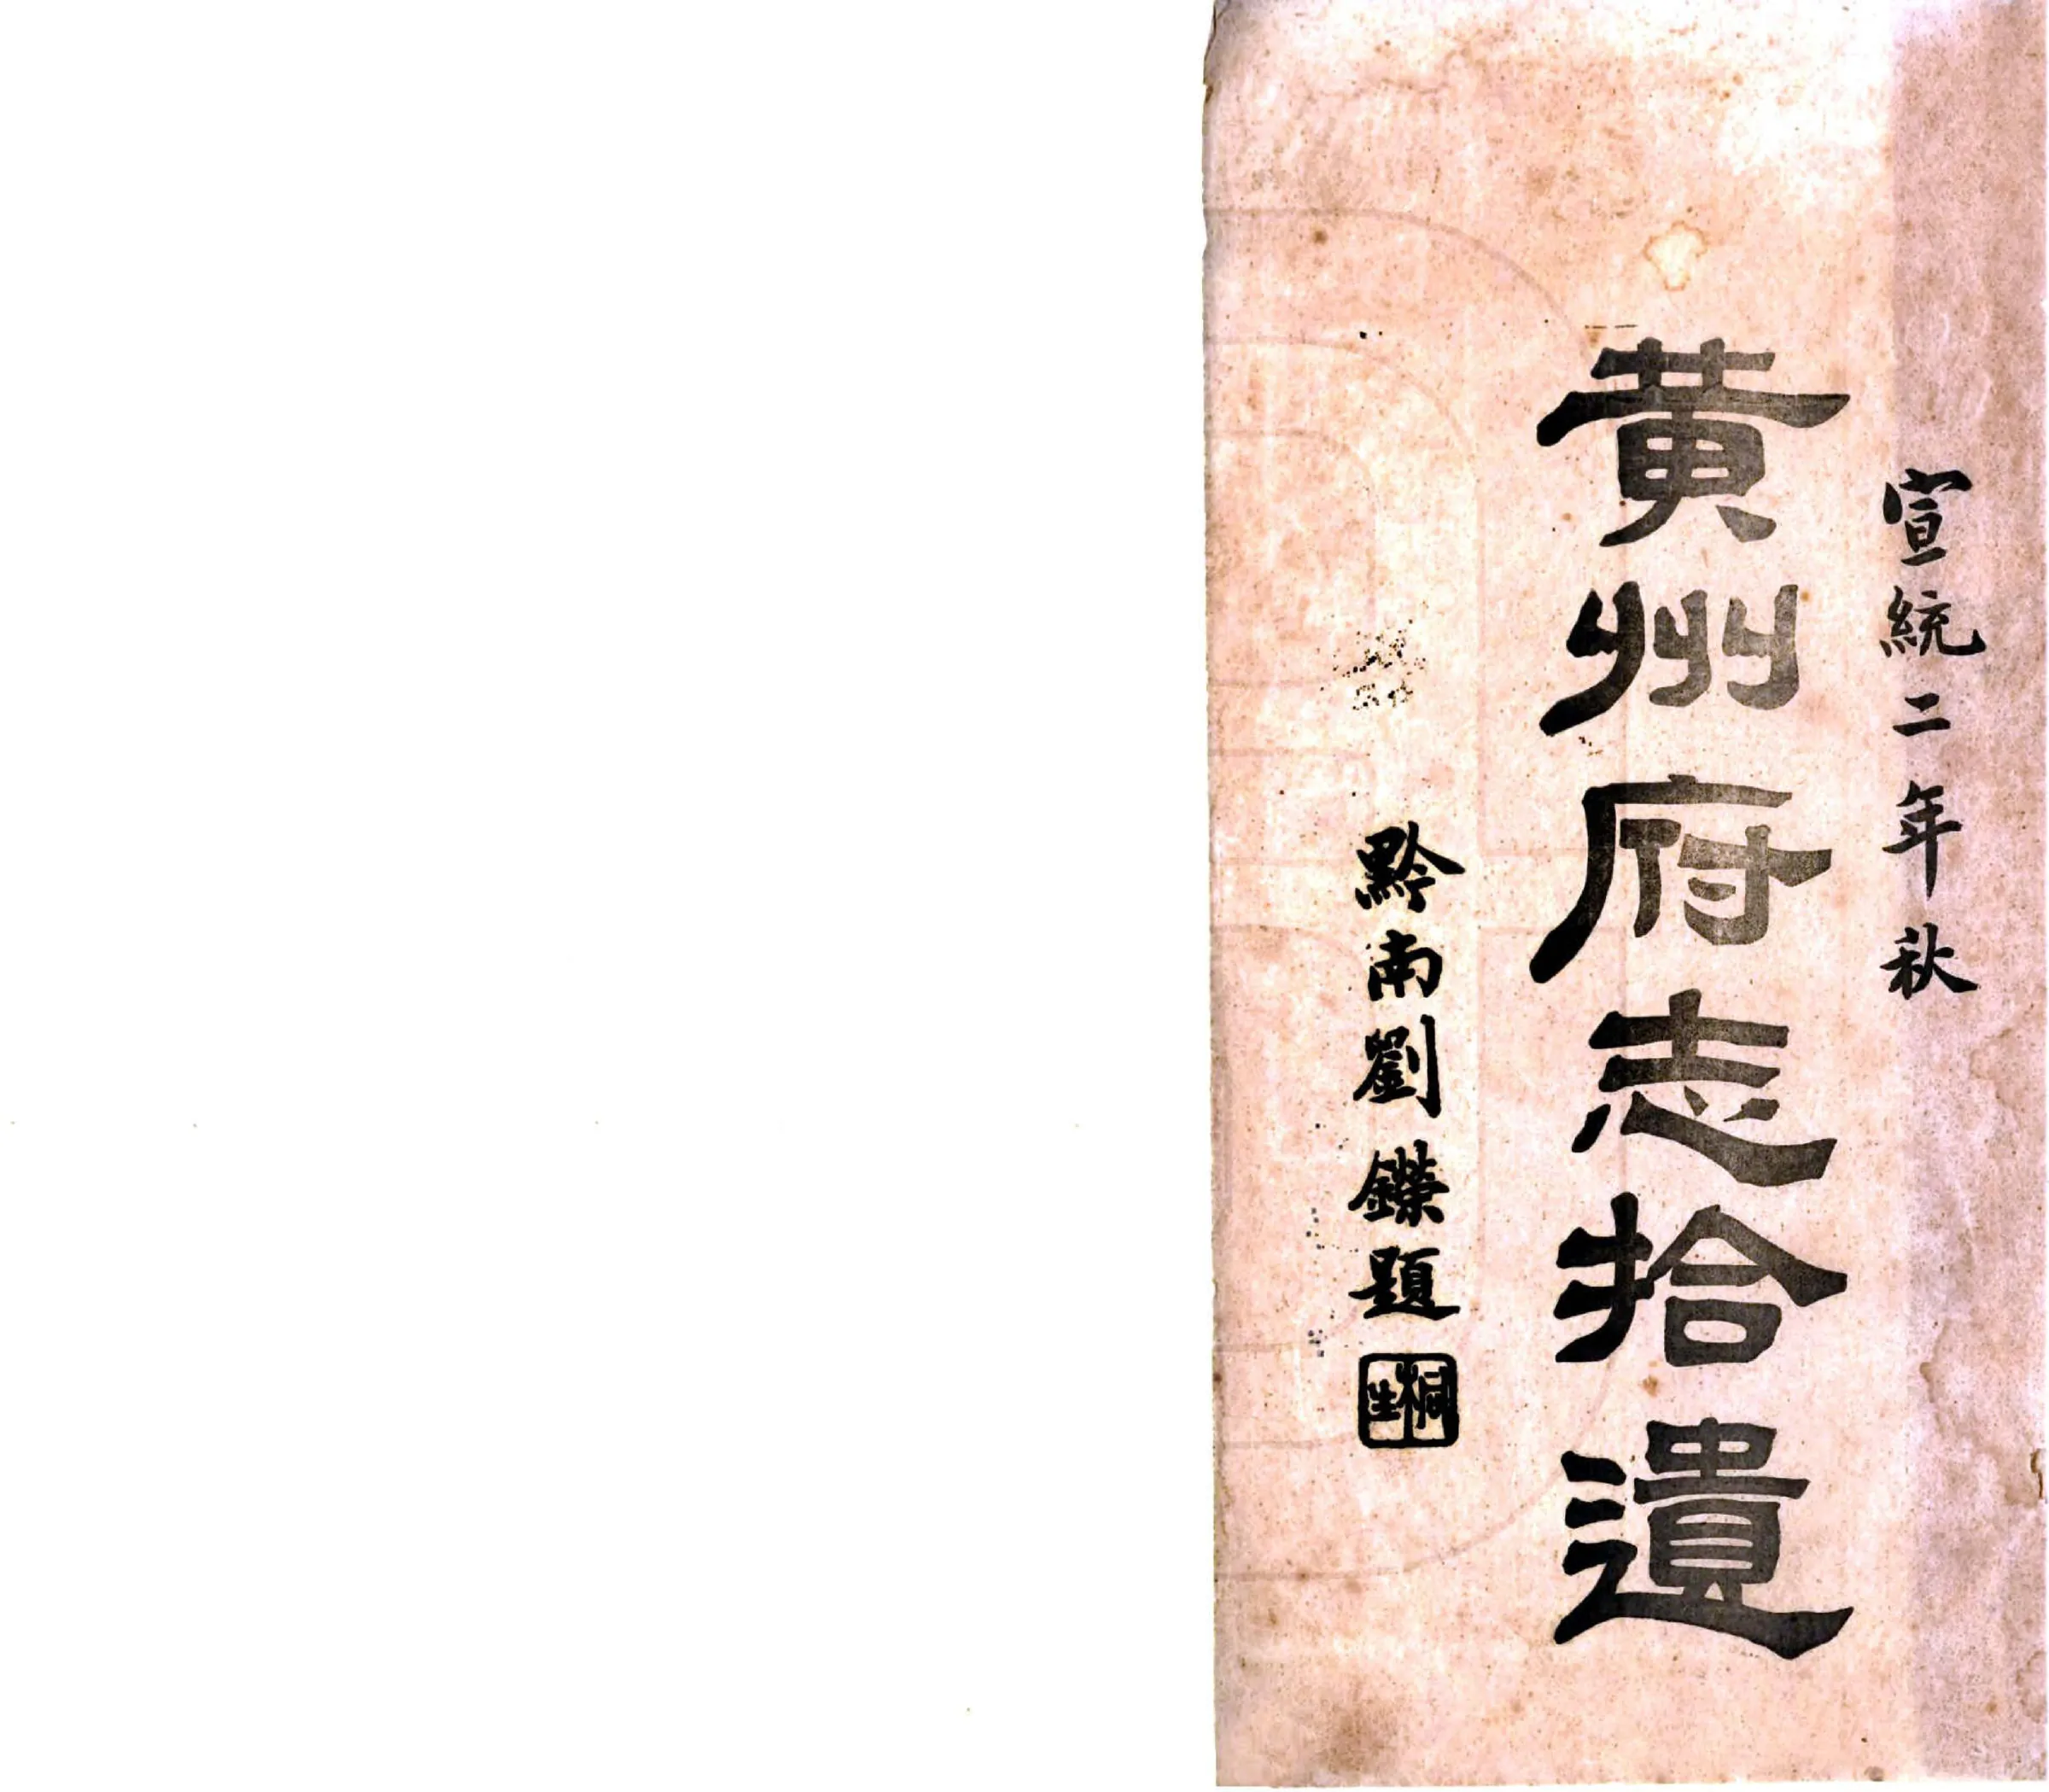 宣統二年秋
黄州府志拾遺
黔南劉鑅題
桐生